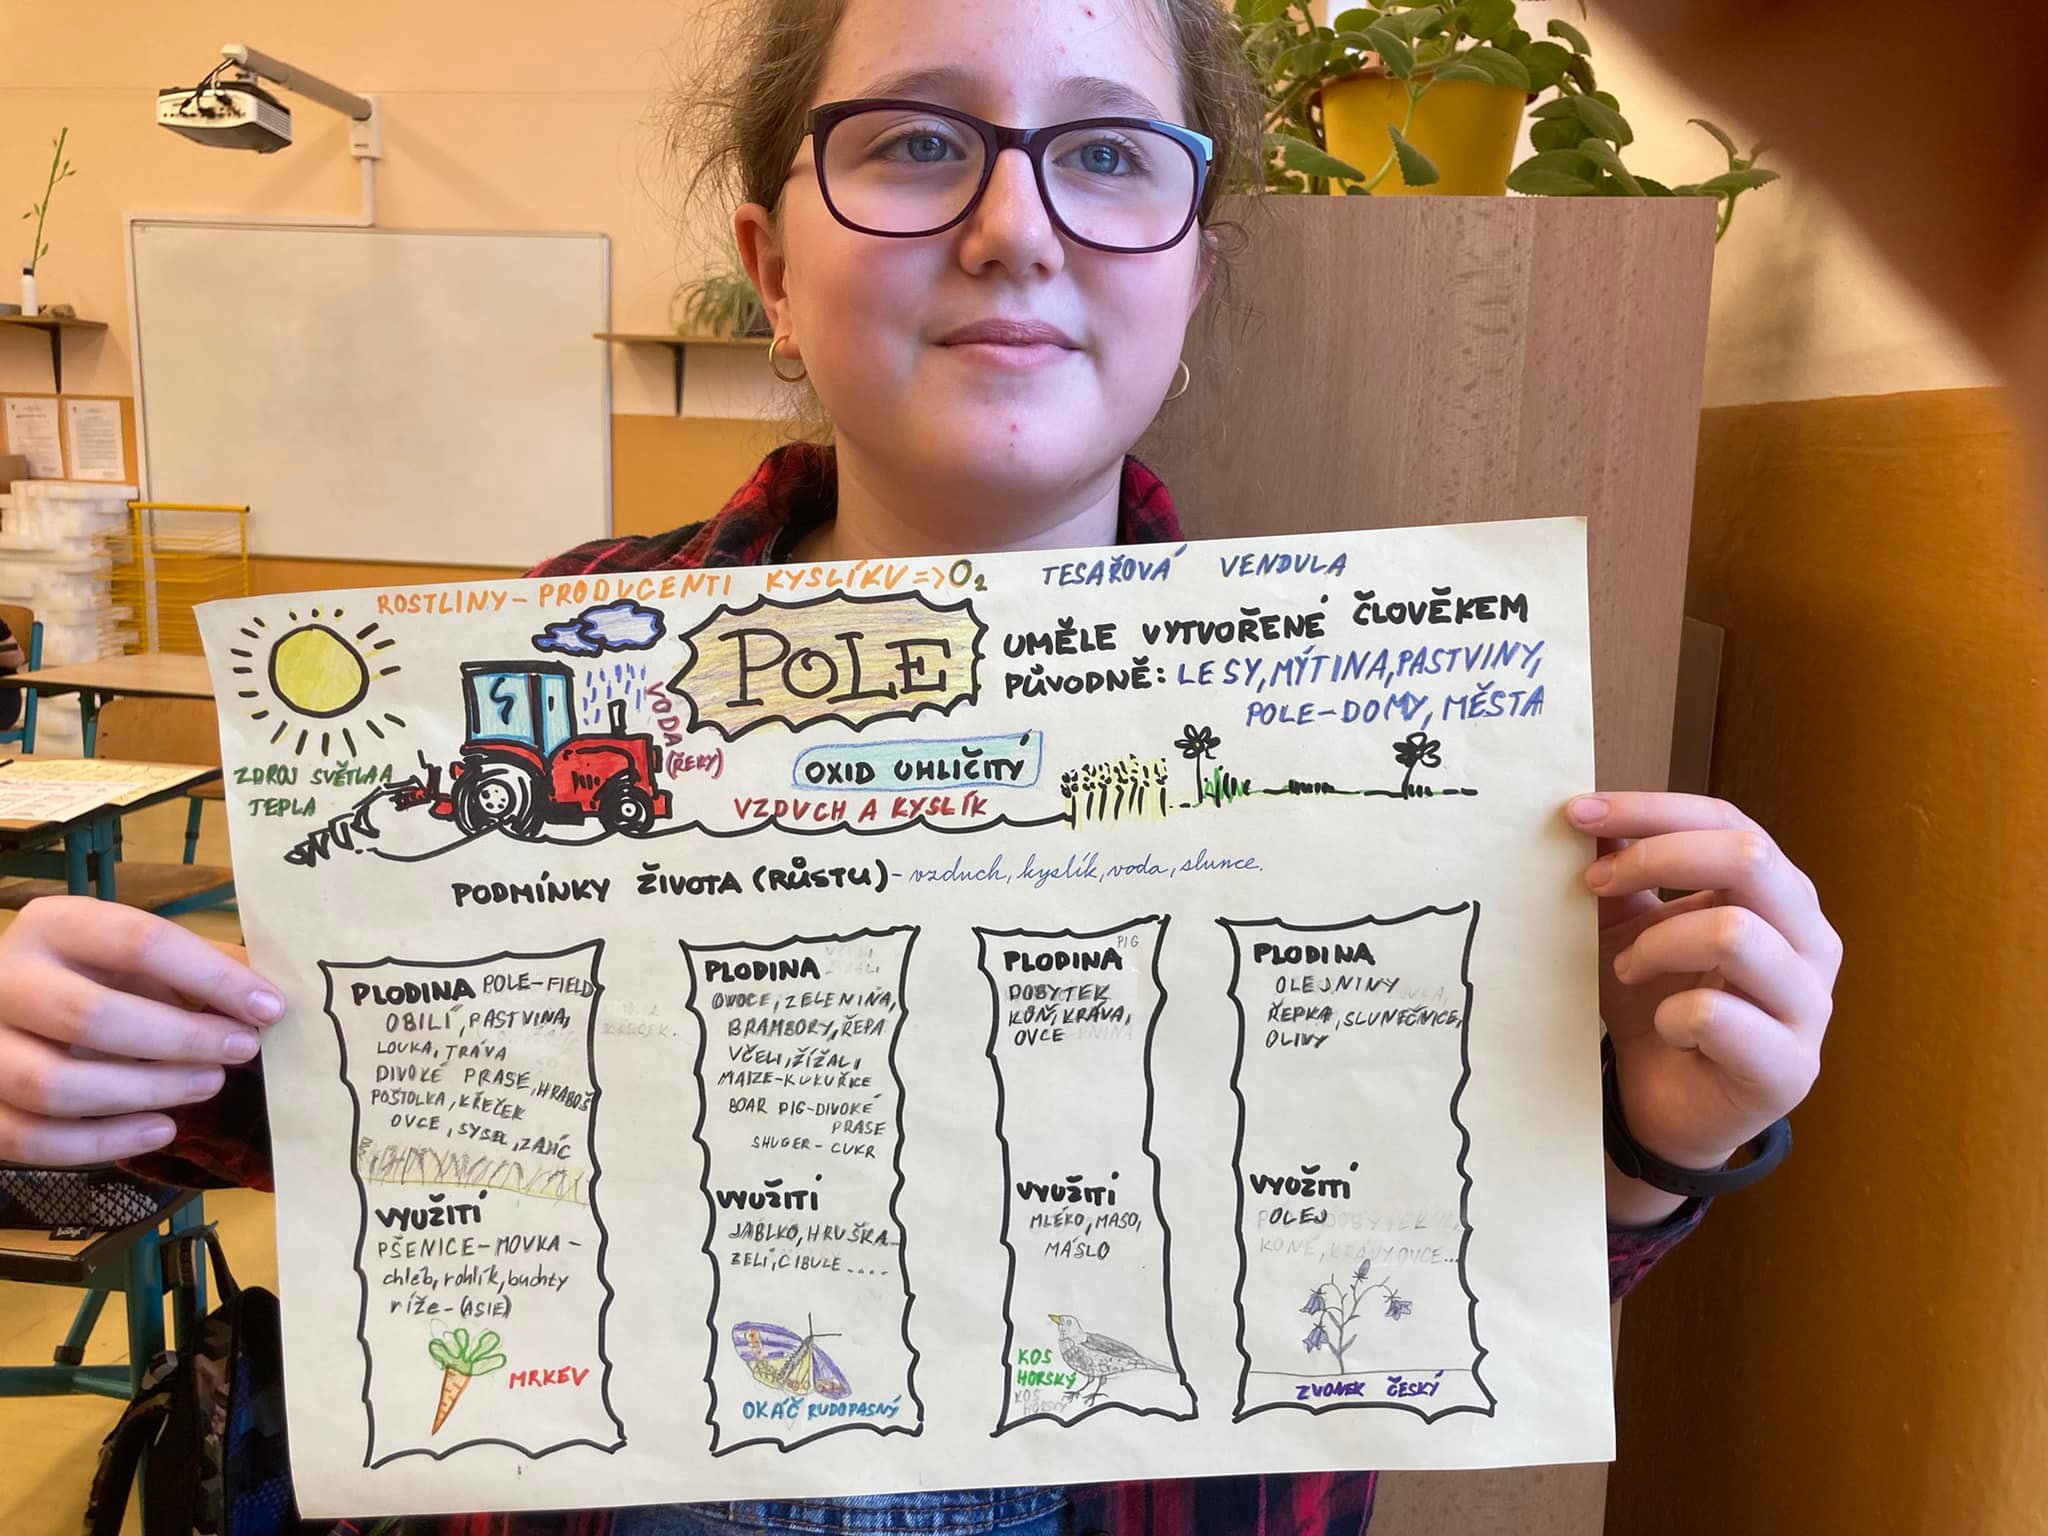 ROSTLINY-PRODUCENTI KYSLÍKU => O2
TESAŘOVÁ VENDULA
POLE
UMĚLE VYTVOŘENÉ ČLOVĚKEM
PŮVODNĚ: LESY, MÝTINA, PASTVINY,
POLE-DOMY, MĚSTA
VODA
(ŘEKY)
ZDROJ SVĚTLA A
TEPLA
OXID UHLIČITÝ
VZDUCH A KYSLÍK
PODMÍNKY ŽIVOTA (RŮSTU) - vzduch, kyslík, voda, slunce.
PLODINA POLE-FIELD
OBILÍ, PASTVINA,
LOUKA, TRÁVA
DIVOKÉ PRASE, HRABOŠ
POŠTOLKA, KŘEČEK
OVCE, SYSEL, ZAJÍC
VYUŽITÍ
PŠENICE-MOVKA-
chléb, rohlík, buchty
ríže-(ASIE)
MRKEV
PLODINA
OVOCE, ZELENINA,
BRAMBORY, ŘEPA
VČELI, ŽÍŽALI
MAIZE-KUKUŘICE
BOAR PIG-DIVOKÉ
PRASE
SHUGER-CUKR
VYUŽITÍ
JABLKO, HRUŠKA
ZELÍ, CIBULE....
OKÁČ RUDOPASNÝ
PLODINA PIG
DOBYTEK
KOŇ, KRÁVA,
OVCE
VYUŽITÍ
MLÉKO, MASO,
MÁSLO
KOS
HORSKÝ
KOS
HORSKÝ
PLODINA
OLEJNINY
ŘEPKA, SLUNEČNICE,
OLIVY
VYUŽITÍ
OLEJ
KONĚ, KRÁVY OVCE...
ZVONEK ČESKÝ